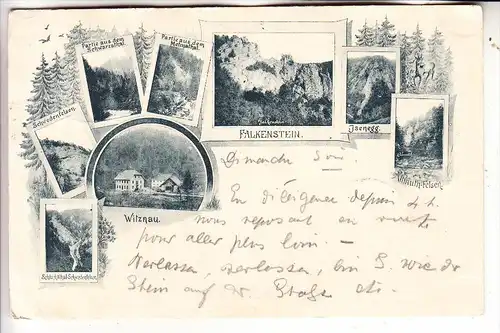 Partie aus dem
Schwarzathal.
Partie aus dem
Mettmathal.
Schwedenfelsen.
FALKENSTEIN.
Isenegg.
Witznau.
Dimanche soir
En diligence depuis 4 h.
nous reposant en route
pour aller plus loin -
Verlassen, verlassen, bin I. wie der
Stein auf der Straße etc.